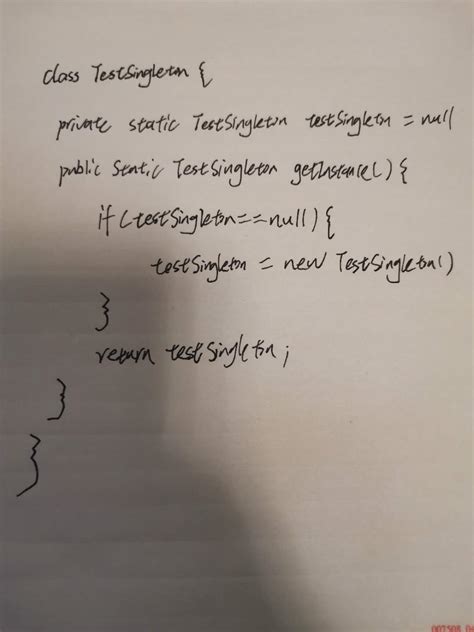 class TestSingleton {
private static TestSingleton testSingleton = null
public static TestSingleton getInstance() {
if (testSingleton==null) {
testSingleton = new TestSingleton()
}
return testSingleton;
}
}